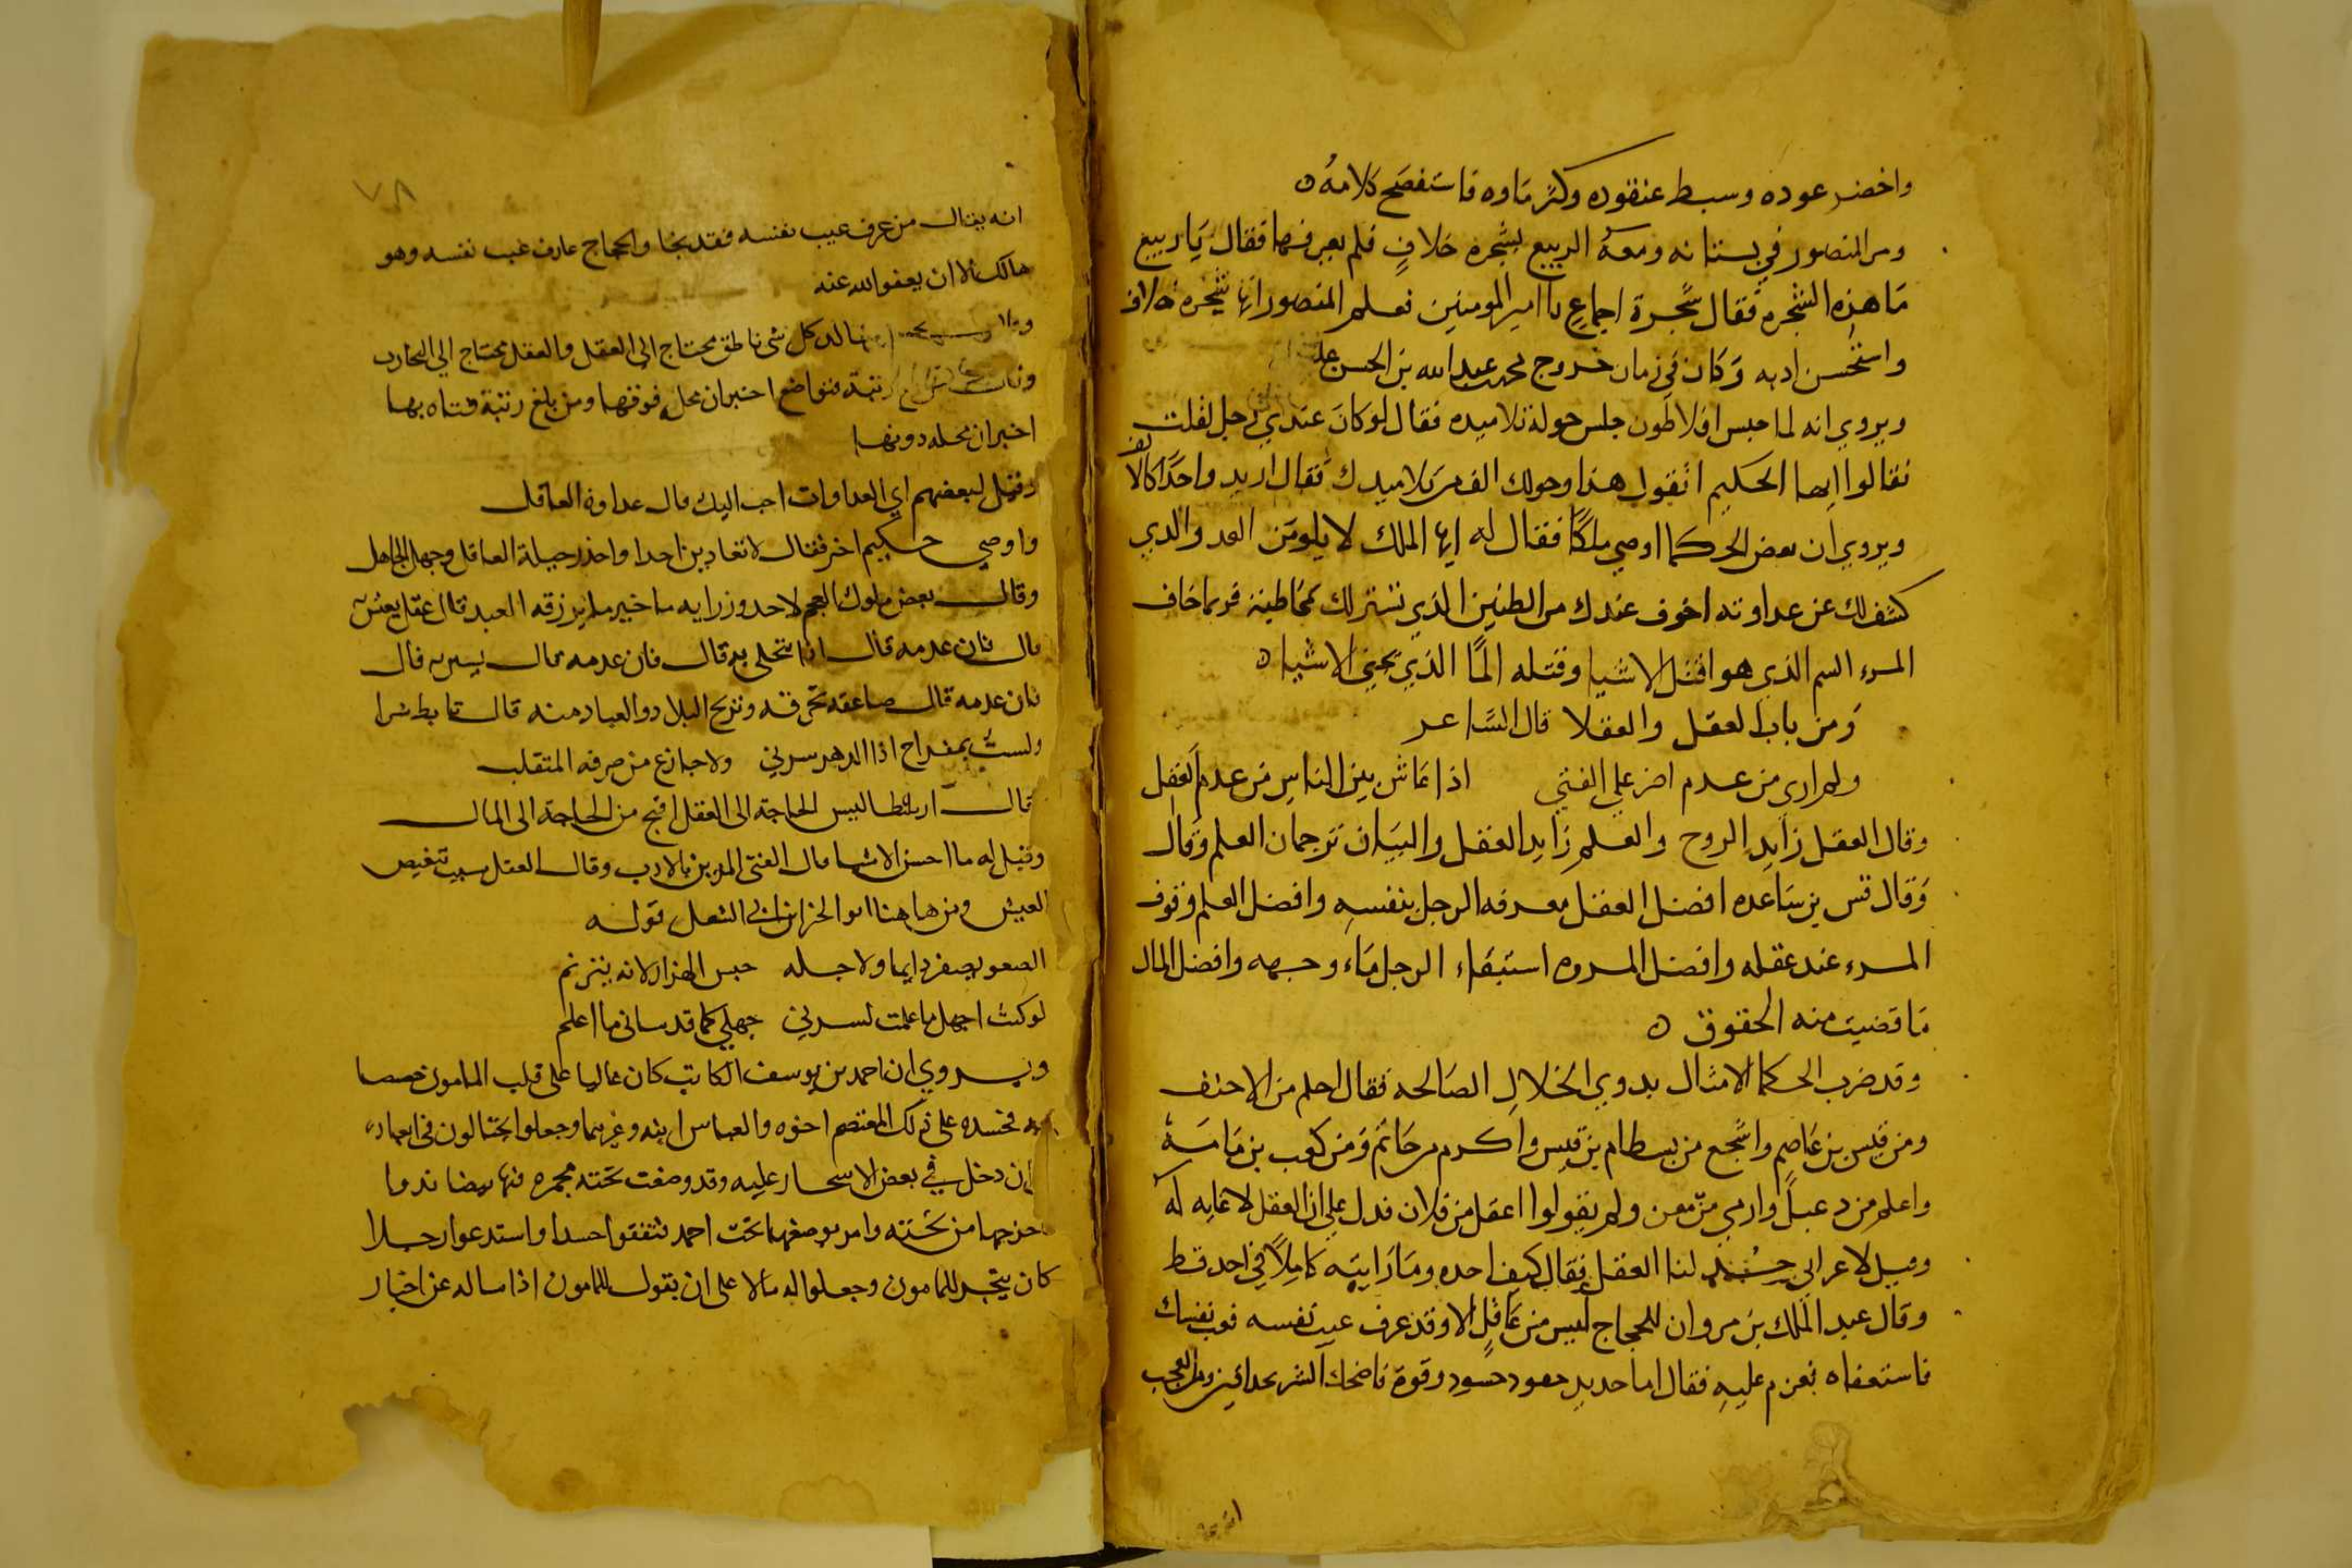 واخضر عوده وسبط عنقوده وكثر ماوه فاستفصح كلامه ه
ومر المنصور في بستانه ومعه الربيع بشجره خلاف فلم يعرفها فقال يا ربيع
ما هذه الشجره فقال شجرة اجماع يا امير المومنين فعلم المنصور انها شجره خلاف
واستحسن ادبه وكان في زمان خروج محمد بن عبد الله بن الحسن عليه
ويروي انه لما حبس افلاطون جلس حوله تلاميده فقال لو كان عندي رجل لفلت
فقالوا ايها الحكيم اتقول هذا وحولك الف من تلاميدك فقال اريد واحدا كالالف
ويروي ان بعض الحكما اوصي ملكا فقال له ايها الملك لا يكونن العدو الذي
كشف لك عن عداوته اخوف عندك من الظنين الذي تستر لك بمخاطبته فربما خاف
المرء السم الذي هو اقتل الاشيا وقتله الما الذي يحيي الاشيا ه
ومن باب العقل والعقلا قال الشاعر
ولم اري من عدم اضر علي الفتي اذا عاش بين الناس من عدم العقل
وقال العقل زايد الروح والعلم زايد العقل والبيان ترجمان العلم وقال
وقال قس بن ساعده افضل العقل معرفه الرجل بنفسه وافضل العلم وقوف
المرء عند عقله وافضل المروه استبقاء الرجل ماء وجهه وافضل المال
ما قضيت منه الحقوق ه
وقد ضرب الحكما الامثال بدوي الخلال الصالحه فقال احلم من الاحنف
ومن قيس بن عاصم واشجع من بسطام بن قيس واكرم من حاتم ومن كعب بن مامة
واعلم من دعبل وارمي من معن ولم يقولوا اعقل من فلان فدل علي ان العقل لا غايه له
وقيل لاعرابي حد لنا العقل فقال كيف احده وما رايته كاملا في احد قط
وقال عبد الملك بن مروان للحجاج ليس من عاقل الا وقد عرف عيب نفسه فعب نفسك
فاستعفاه فعزم عليه فقال اما حديد حقود حسود وقوة فاضحك الشر بحدافيره ومن العجب
انه يقال من عرف عيب نفسه فقد نجا والحجاج عارف عيب نفسه وهو
هالك الا ان يعفو الله عنه
كل شي ناطق محتاج الى العقل والعقل محتاج الي التجارب
رتبة فتواضع اخبر ان محله فوقها ومن بلغ رتبة فتاه بها
اخبر ان محله دونها
وقيل لبعضهم اي العداوات احب اليك قال عداوة العاقل
واوصي حكيم اخر فقال لا تعادين احدا واحذر حيلة العاقل وجهل الجاهل
وقال بعض ملوك العجم لاحد وزرايه ما خير ما يرزقه العبد قال عقل يعيش به
قال فان عدمه قال ادب يتحلي به قال فان عدمه قال يستره قال
فان عدمه قال صاعقه تحرقه وتريح البلاد والعباد منه قال تابط شرا
ولست بمفراح اذا الدهر سرني ولا جازع من صرفه المتقلب
قال ارسطاليس الحاجة الى العقل اقبح من الحاجة الى المال
وقيل له ما احسن الاشيا قال الفتى المزين بالادب وقال العقل سبب تنغيص
العيش ومن هاهنا قوله
الصعو يصفر دايما ولاجله حبس الهزار لانه يترنم
لو كنت اجهل ما علمت لسرني جهلي كما قد ساني ما اعلم
ويروي ان احمد بن يوسف الكاتب كان غالبا على قلب المامون خصيصا
به فحسده على ذلك المعتصم اخوه والعباس ابنه وغيرهما وجعلوا يحتالون في ابعاده
ان دخل في بعض الاسحار عليه وقد وضعت تحته مجمره فيها بيضا ند وما
اخرجها من تحته وامر بوضعها تحت احمد فتفقوا حسدا واستدعوا رجلا
كان يتخبر للمامون وجعلوا له مالا على ان يقول للمامون اذا ساله عن اخبار